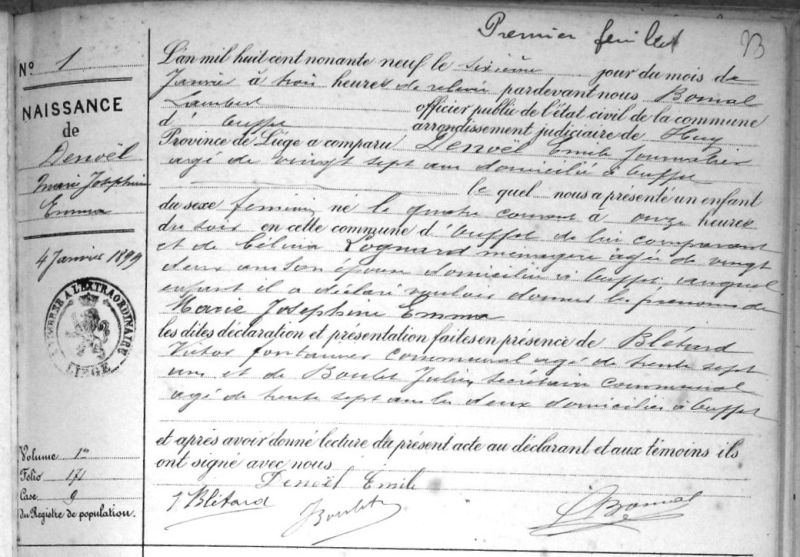 Premier feuillet
23
N° 1
NAISSANCE
de
Denoël
Marie Joséphine
Emma
4 Janvier 1899
TIMBRE A L'EXTRAORDINAIRE
LIÈGE
Volume 1er
Folio 171
Case 9
du Registre de population.
L'an mil huit cent nonante neuf le sixième jour du mois de
Janvier à trois heures de relevée pardevant nous Bomal
Lambert officier public de l'état civil de la commune
d' arrondissement judiciaire de Huy
Province de Liége a comparu Denoël Emile Journalier
agé de vingt sept ans domicilié à
le quel nous a présenté un enfant
du sexe féminin né le quatre courant à onze heures
du soir en cette commune d' de lui comparant
et de Célina Rognard ménagère agée de vingt
deux ans son épouse domiciliée à auquel
enfant il a déclaré vouloir donner les prénoms de
Marie Joséphine Emma
les dites déclaration et présentation faites en présence de Blétard
Victor fontainier communal agé de trente sept
ans et de Boulet Julien, Secrétaire communal
agé de trente sept ans les deux domiciliés à
et après avoir donné lecture du présent acte au déclarant et aux témoins ils
ont signé avec nous
Denoël Emile
Blétard
Boulet
L Bomal